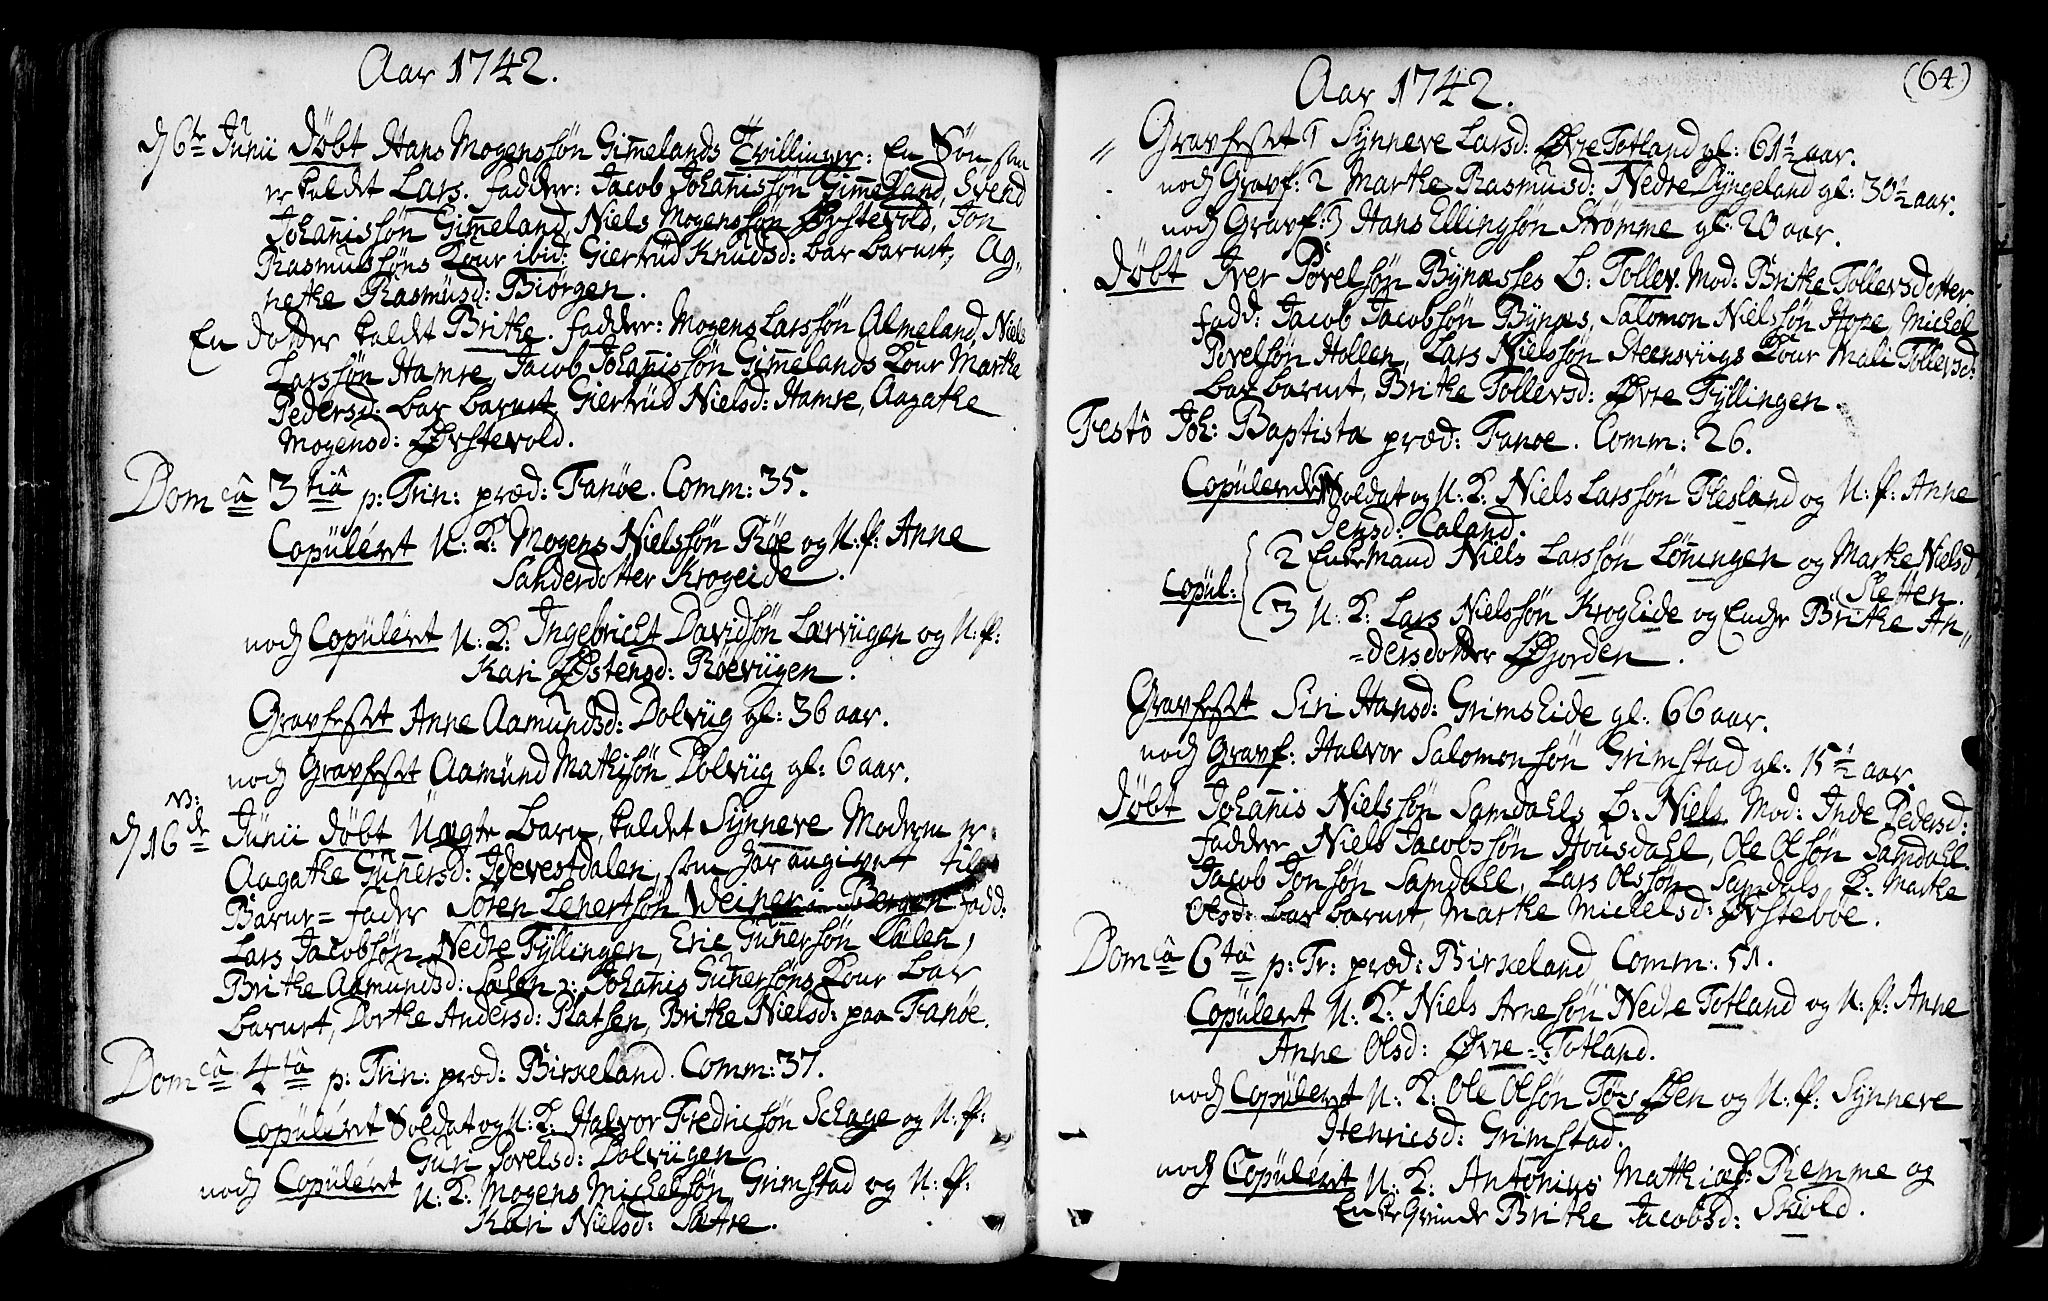 Aar 1742.
d 6te Junii Döbt Hans Mogenssön Gim̄elands Tvillinger: En Sön som
er kaldet Lars. fadder: Jacob Johan̄issön Gim̄eland, Svend
Johan̄issön Gim̄eland, Niels Mogenssön Ørstevold, Jon
Rasmussöns Kone ibid: Giertrüd Knudsd: bar barnet, Ag-
nethe Rasmüsd: Biörgen.
En dotter kaldet Brithe. fadder: Mogens Larssön Almeland, Niels
Larssön Hamre, Jacob Johan̄issön Gim̄elands Kone Marthe
Pedersd: bar barnet, Giertrüd Nielsd: Hamre, Aagathe
Mogensd: Ørstevold.
Domcâ 3tiâ p: Trin: præd: Fanöe. Comm: 35.
Copülért U: K: Mogens Nielssön Röe og U: P: Anne
Sanderdotter Krogeide.
noch Copülért U: K: Ingebricht Davidsön Lærviigen og U: P:
Kari Østensd: Röeviigen.
Gravfestet Anne Aamundsd: Dolviig gl: 36 aar.
noch Gravfestet Aamünd Mathisön Dolviig gl: 6 aar.
NB:
d 16de Junii Döbt Uægte barn, kaldet Synneve Moderen er
Aagathe Gün̄ersd: Idevestdalen, som har angivet til
Barne= fader Sören Lenertsön Weiner i Bergen fadd:
Lars Jacobsön, Nedre Fyllingen, Eric Gün̄ersön Sælen,
Brithe Aamundsd: Sælen, Johan̄is Gun̄ersöns Kone bar
barnet, Dorthe Andersd: Ratsen, Brithe Nielsd: paa Fanöe.
Domcâ 4tâ p: Trin: præd: Birkeland. Comm: 37.
Copülért Soldat og U: K: Halvor Fredricsön Schage og U: P:
Guri Povelsd: Dolviigen
noch Copülért U: K: Mogens Michelsön Grimstad og U: P:
Kari Nielsd: Sætre.
(64)
Aar 1742.
Gravfestet 1 Synneve Larsd: Øvre Totland gl: 61½ aar.
noch Gravf: 2 Marthe Rasmusd: Nedre Dyngeland gl: 30½ aar.
noch Gravf: 3 Hans Ellingsön Strømme gl: 20 aar.
Döbt Iver Povelsön Bynæsses B: Tollev. Mod: Brithe Tollevsdotter
fadd: Jacob Jacobsön Bynæs, Salomon Nielssön Hope, Michel
Povelsön Hollen, Lars Nielssön Steensviigs Kone Mali Tollevsd:
bar barnet, Brithe Tollevsd: Øvre Fyllingen.
Festô Joh: Baptistæ præd: Fanoe. Comm: 26.
Copülerede Soldat og U: K: Niels Larssön Flesland og U: P: Anne
Jensd: Caland.
Copül: 2 Enkemand Niels Larssön Lön̄ingen og Marthe Nielsd
Sletten.
3 U: K: Lars Nielssön Krogeide og Enche Brithe An-
=dersdotter Øjorden.
Gravfestet Siri Hansd: Grimseide gl: 66 aar.
noch Gravf: Halvor Salomonsön Grimstad gl: 15½ aar.
Döbt Johan̄is Nielssön Samdahls B: Niels Mod: Inde Pedersd:
fadder Niels Jacobssön Housdahl, Ole Olsön Samdahl
Jacob Jonsön Samdahl, Lars Olssön Samdals K: Marthe
Olsd: bar barnet, Marthe Michelsd: Ørsteböe.
Domcâ 6tâ p: Tr: præd: Birkeland Comm: 51.
Copülert U: K: Niels Arnesön Nedre Totland og U: P: Anne
Anne Olsd: Øvre= Totland.
noch Copülert U: K: Ole Olsön Törs Øen og U: P: Synneve
Henricsd: Grimstad.
noch Copülérit U: K: Antonius Mathiæs: Remme og
Enkeqvinde Brithe Jacobsd: Skiold.